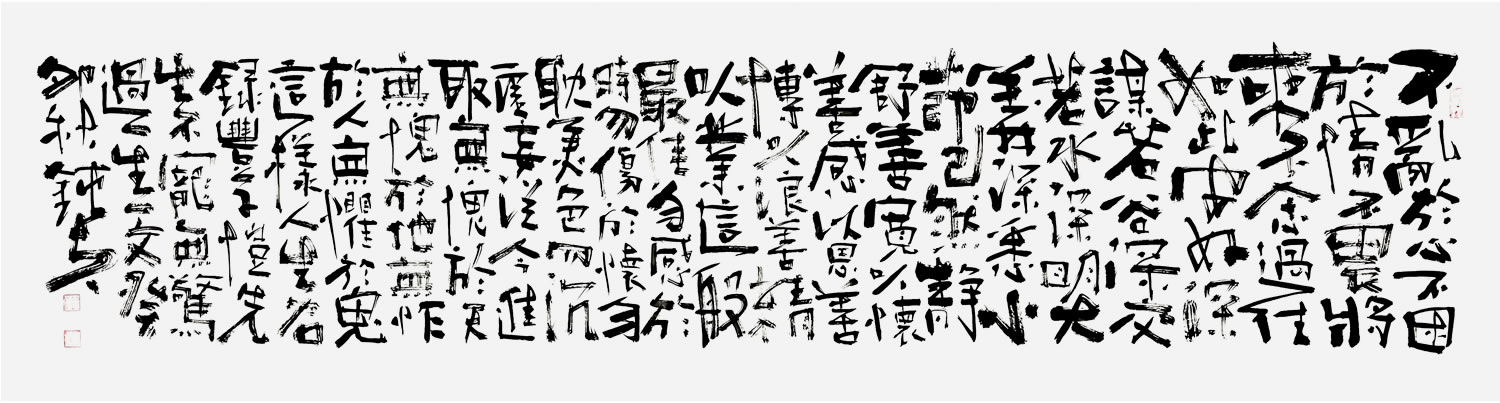 不亂於心不困
於情不畏將
來不念過往
如此安好深
謀若谷深交
若水深明大
義深悉小
節已然靜
舒善寬以懷
善感以恩善
博以浪善精
以業這般
最佳勿感於
時勿傷於懷勿
耽美色勿沉
虛妄從今進
取無愧於天
無愧於地無怍
於人無懼於鬼
這樣人生
錄豐子愷先
生不寵無驚
過一生之文癸
卯秋